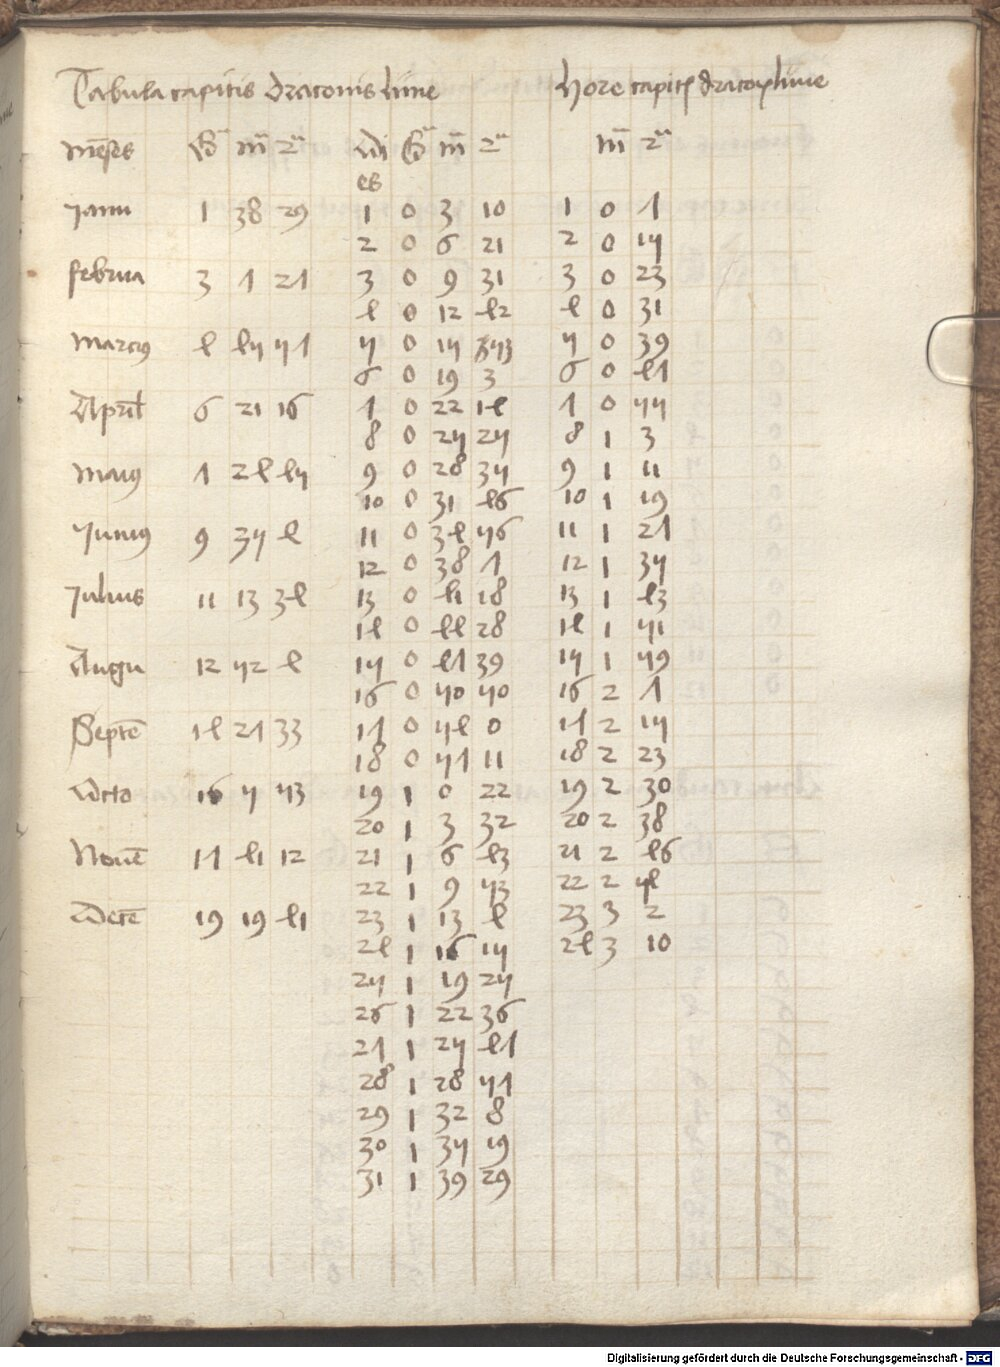 Tabula capitis draconis lune Hore capitis draconis lune
Menses Gͣ m̄ 2ͣ Di Gͣ m̄ 2ͣ m̄ 2ͣ
es
Janu 1 38 29 1 0 3 10 1 0 7
2 0 6 21 2 0 15
februa 3 7 27 3 0 9 31 3 0 23
4 0 12 42 4 0 31
Marcius 4 45 57 5 0 15 53 5 0 39
6 0 19 3 6 0 47
April 6 21 16 7 0 22 14 7 0 55
8 0 25 25 8 1 3
Maius 7 24 45 9 0 28 35 9 1 11
10 0 31 46 10 1 19
Junius 9 35 4 11 0 34 56 11 1 27
12 0 38 7 12 1 35
Julius 11 13 34 13 0 41 18 13 1 43
14 0 44 28 14 1 51
Augu 12 52 4 15 0 47 39 15 1 59
16 0 50 50 16 2 7
Septē 14 27 33 17 0 54 0 17 2 15
18 0 57 11 18 2 23
Octo 16 5 53 19 1 0 22 19 2 30
20 1 3 32 20 2 38
Nouē 17 41 12 21 1 6 43 21 2 46
22 1 9 53 22 2 54
Decē 19 19 41 23 1 13 4 23 3 2
24 1 16 15 24 3 10
25 1 19 25
26 1 22 36
27 1 25 47
28 1 28 57
29 1 32 8
30 1 35 19
31 1 39 29
Digitalisierung gefördert durch die Deutsche Forschungsgemeinschaft - DFG